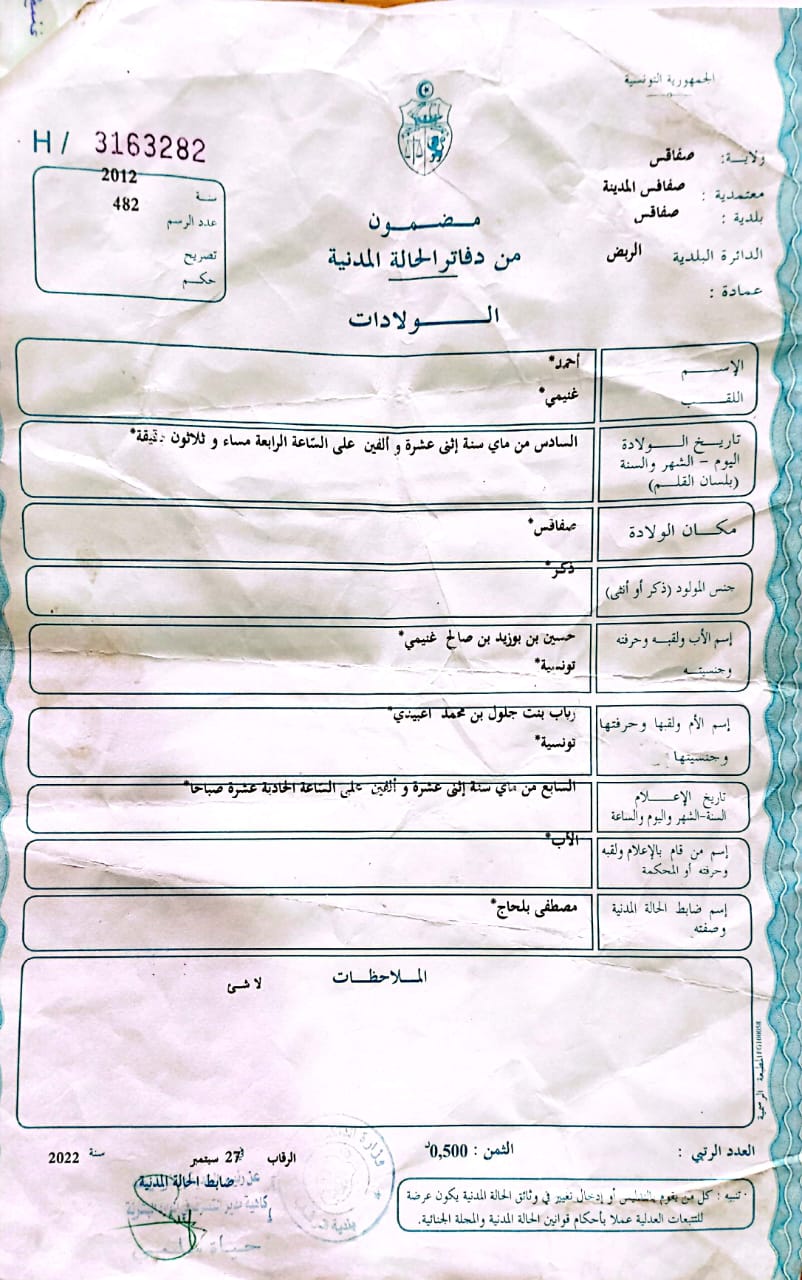 الجمهورية التونسية
ولاية: صفاقس
معتمدية : صفاقس المدينة
بلدية : صفاقس
الدائرة البلدية الربض
عمادة :
H / 3163282
سنة 2012
عدد الرسم 482
تصريح
حكم
مضمون
من دفاتر الحالة المدنية
الولادات
الإسم أحمد*
اللقب غنيمي*
تاريخ الولادة
اليوم - الشهر والسنة
(بلسان القلم)
السادس من ماي سنة إثنى عشرة و ألفين على السّاعة الرابعة مساء و ثلاثون دقيقة*
مكان الولادة صفاقس*
جنس المولود (ذكر أو أنثى) ذكر*
إسم الأب ولقبه وحرفته
وجنسيته
حسين بن بوزيد بن صالح غنيمي*
تونسية*
إسم الأم ولقبها وحرفتها
وجنسيتها
رباب بنت جلول بن محمد اعبيدي*
تونسية*
تاريخ الإعلام
السنة-الشهر واليوم والساعة
السابع من ماي سنة إثنى عشرة و ألفين على الساعة الحادية عشرة صباحا*
إسم من قام بالإعلام ولقبه
وحرفته أو المحكمة
الأب*
إسم ضابط الحالة المدنية
وصفته
مصطفى بلحاج*
الملاحظات
لا شئ
المطبعة الرسمية
العدد الرتبي :
الثمن : 0,500د
الرقاب في 27 سبتمبر سنة 2022
ضابط الحالة المدنية
تنبيه : كل من يقوم بالتدليس أو إدخال تغيير في وثائق الحالة المدنية يكون عرضة
للتتبعات العدلية عملا بأحكام قوانين الحالة المدنية والمجلة الجنائية.